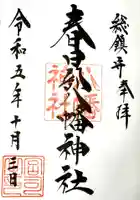 総鎮守奉拝
春日部八幡神社
八幡神社
令和五年十月三日